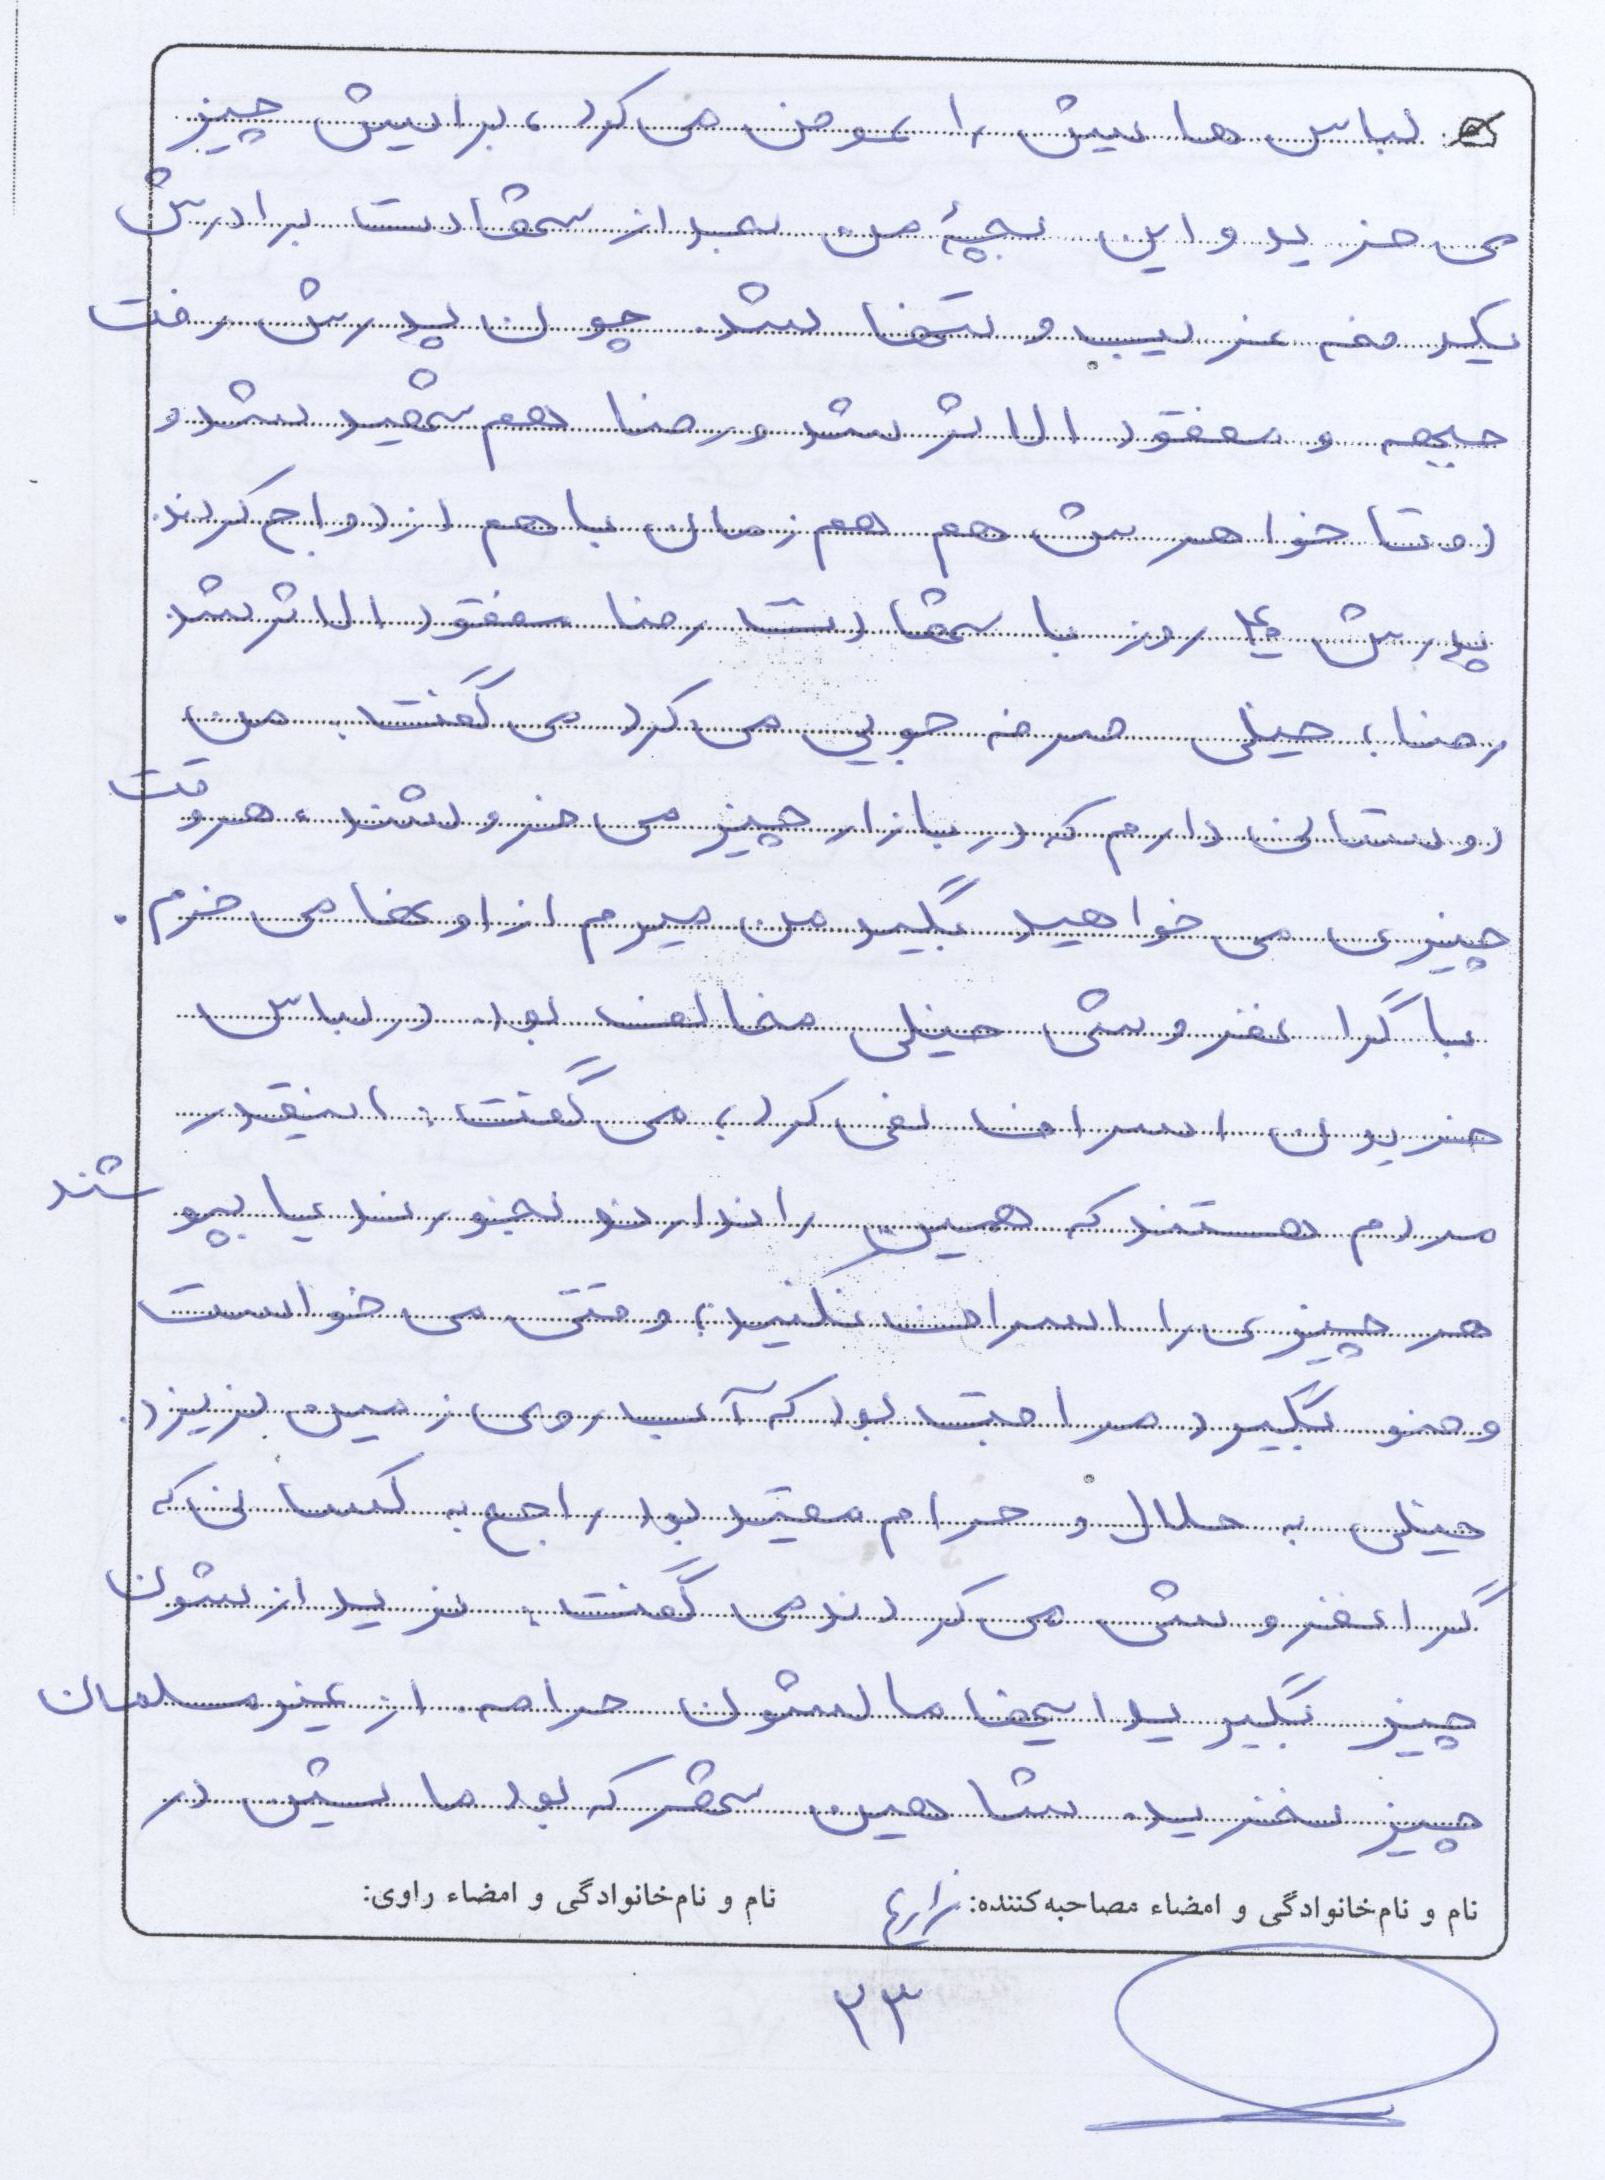 لباس هایش را عوض می‌کرد، برایش چیز
می خرید و این بچهٔ من بعد از شهادت برادرش
یکدفعه غریب و تنها شد. چون پدرش رفت
جبهه و مفقود الاثر شد و رضا هم شهید شد و
دوتا خواهرش هم هم زمان با هم ازدواج کردند.
پدرش ۴۰ روز با شهادت رضا مفقود الاثر شد.
رضا، خیلی صرفه جویی می‌کرد می گفت: من
دوستانی دارم که در بازار چیز می فروشند، هروقت
چیزی می خواهید بگید من میرم از اونها می خرم.
با گرانفروشی خیلی مخالف بود. در لباس
خریدن اسراف نمی کرد؛ می گفت: اینقدر
مردم هستند که همین را ندارند بخورند یا بپوشند
هر چیزی را اسراف نکنید؛ وقتی می خواست
وضو بگیرد مراقب بود که آب روی زمین نریزد.
خیلی به حلال و حرام مقید بود راجع به کسانی که
گرانفروشی می کردند می گفت: نرید ازشون
چیز بگیرید اینها مالشون حرامه. از غیرمسلمان
چیز نخرید. شاهین شهر که بود ماشین در
نام و نام‌خانوادگی و امضاء مصاحبه‌کننده: زارع نام و نام‌خانوادگی و امضاء راوی:
۲۳